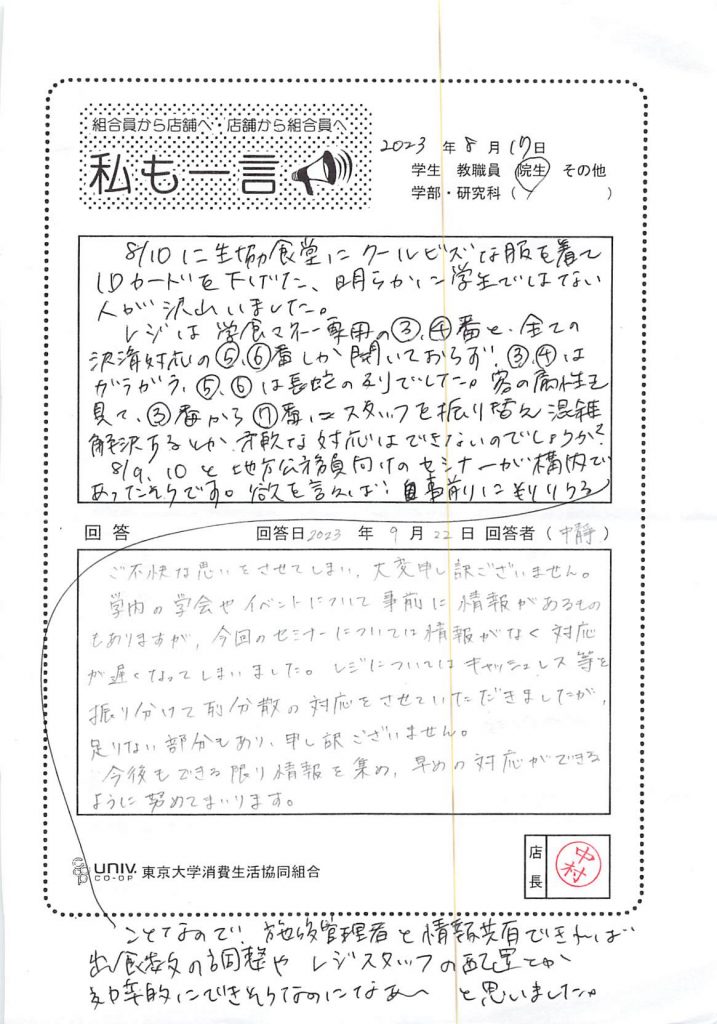 組合員から店舗へ・店舗から組合員へ
私も一言
2023 年 8 月 17 日
学生 教職員 院生 その他
学部・研究科( )
8/10に生協食堂にクールビズな服を着て
IDカードを下げた、明らかに学生ではない
人が沢山いました。
レジは学食マネー専用の③,④番と、全ての
決済対応の⑤,⑥番しか開いておらず、③,④は
ガラガラ、⑤,⑥は長蛇の列でした。客の属性を
見て、③番から⑦番にスタッフを振り替え混雑
解決するとか、柔軟な対応はできないのでしょうか?
8/9, 10と地方公務員向けのセミナーが構内で
あったそうです。欲を言えば、事前に
回答 回答日 2023 年 9 月 22 日 回答者 (中静)
ご不快な思いをさせてしまい、大変申し訳ございません。
学内の学会やイベントについて事前に情報があるもの
もありますが、今回のセミナーについては情報がなく対応
が遅くなってしまいました。レジについてはキャッシュレス等を
振り分けて列分散の対応をさせていただきましたが、
足りない部分もあり、申し訳ございません。
今後もできる限り情報を集め、早めの対応ができる
ように努めてまいります。
UNIV. CO-OP 東京大学消費生活協同組合
店長
中村
ことなので、施設管理者と情報共有できれば
出食数の調整やレジスタッフの配置とか
効率的にできそうなのになあ〜 と思いました。